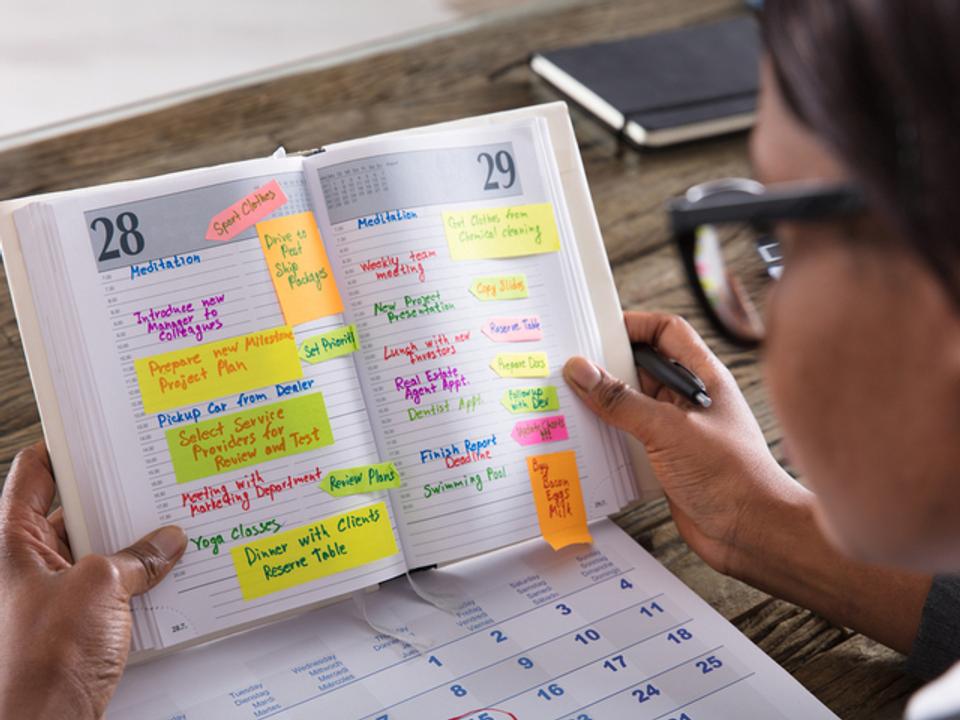 28
Sport Clothes
Meditation
Drive to
Post
Ship
Packages
Introduce new
Manager to
colleagues
Prepare new Milestone
Project Plan
Set Priority
Pickup Car from Dealer
Select Service
Providers for
Review and Test
Meeting with
Marketing Department
Review Plans
Yoga Classes
Dinner with Clients
Reserve Table
28.7.
29
Meditation
Get Clothes from
Chemical cleaning
Weekly team
meeting
Copy Slides
New Project
Presentation
Reserve Table
Lunch with new
Investors
Prepare Docs
Real Estate
Agent Appt.
Follow up
with Dev
Dentist Appt.
Finish Report
Deadline
Swimming Pool
Buy
Bacon
Eggs
Milk
29.7.
Wednesday
Mittwoch
Mercredi
Miércoles
Tuesday
Dienstag
Mardi
Martes
Friday
Freitag
Vendredi
Viernes
Saturday
Samstag
Samedi
Sábado
Sunday
Sonntag
Dimanche
Domingo
1 2 3 4
8 9 10 11
15 16 17 18
24 25